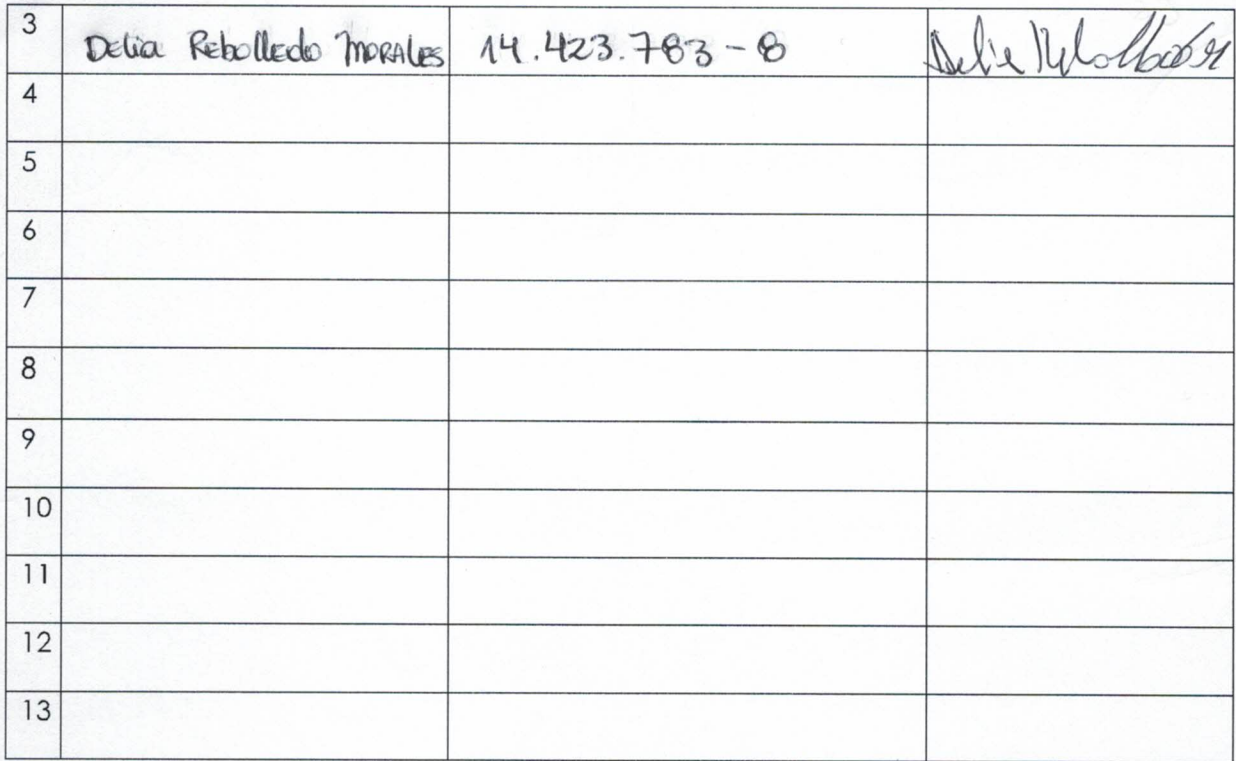 3 Delia Rebolledo MORALES 14.423.783-8
4
5
6
7
8
9
10
11
12
13